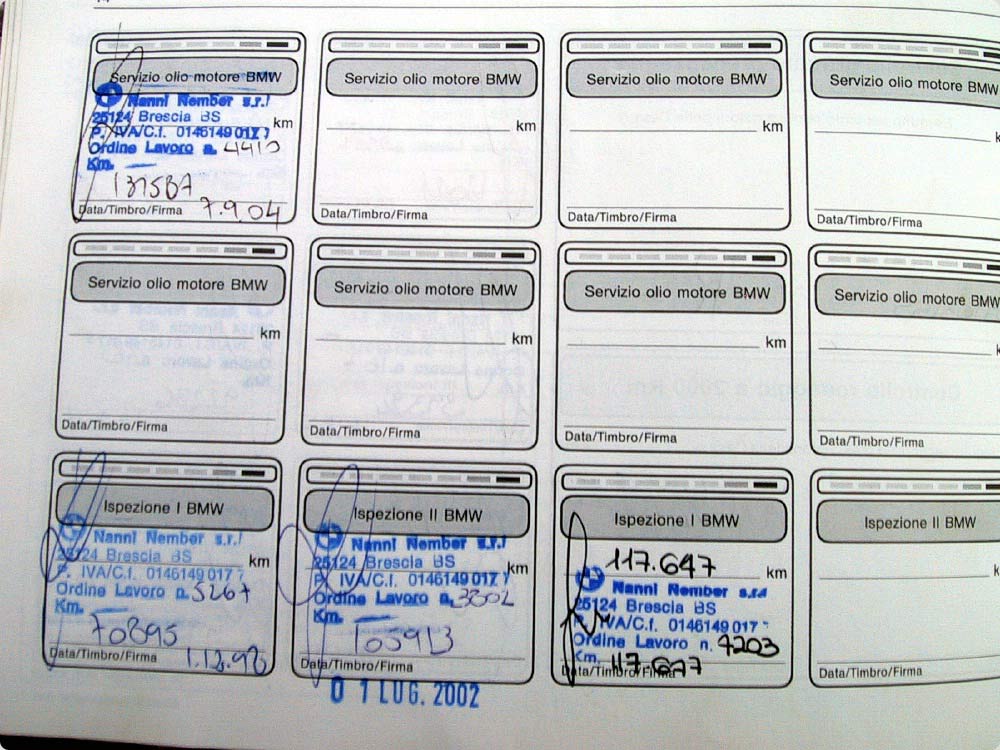 Servizio olio motore BMW
Nanni Nember s.r.l
25124 Brescia BS
km
P. IVA/C.f. 0146149 017 7
Ordine Lavoro n. 4410
Km.
Data/Timbro/Firma 7.9.04
Servizio olio motore BMW
km
Data/Timbro/Firma
Servizio olio motore BMW
km
Data/Timbro/Firma
Servizio olio motore BMW
Data/Timbro/Firma
Servizio olio motore BMW
km
Data/Timbro/Firma
Servizio olio motore BMW
km
Data/Timbro/Firma
Servizio olio motore BMW
km
Data/Timbro/Firma
Servizio olio motore BMW
Data/Timbro/Firma
Ispezione I BMW
Nanni Nember s.r.l
25124 Brescia BS
km
P. IVA/C.f. 0146149 017 7
Ordine Lavoro n. 5267
Km.
70895
Data/Timbro/Firma
Ispezione II BMW
Nanni Nember s.r.l
25124 Brescia BS
km
P. IVA/C.f. 0146149 017 7
Ordine Lavoro n. 3802
Km.
105913
Data/Timbro/Firma
0 1 LUG. 2002
Ispezione I BMW
117.647 km
Nanni Nember s.r.l
25124 Brescia BS
P. IVA/C.f. 0146149 017
Ordine Lavoro n. 7203
Km. 117.647
Data/Timbro/Firma
Ispezione II BMW
Data/Timbro/Firma